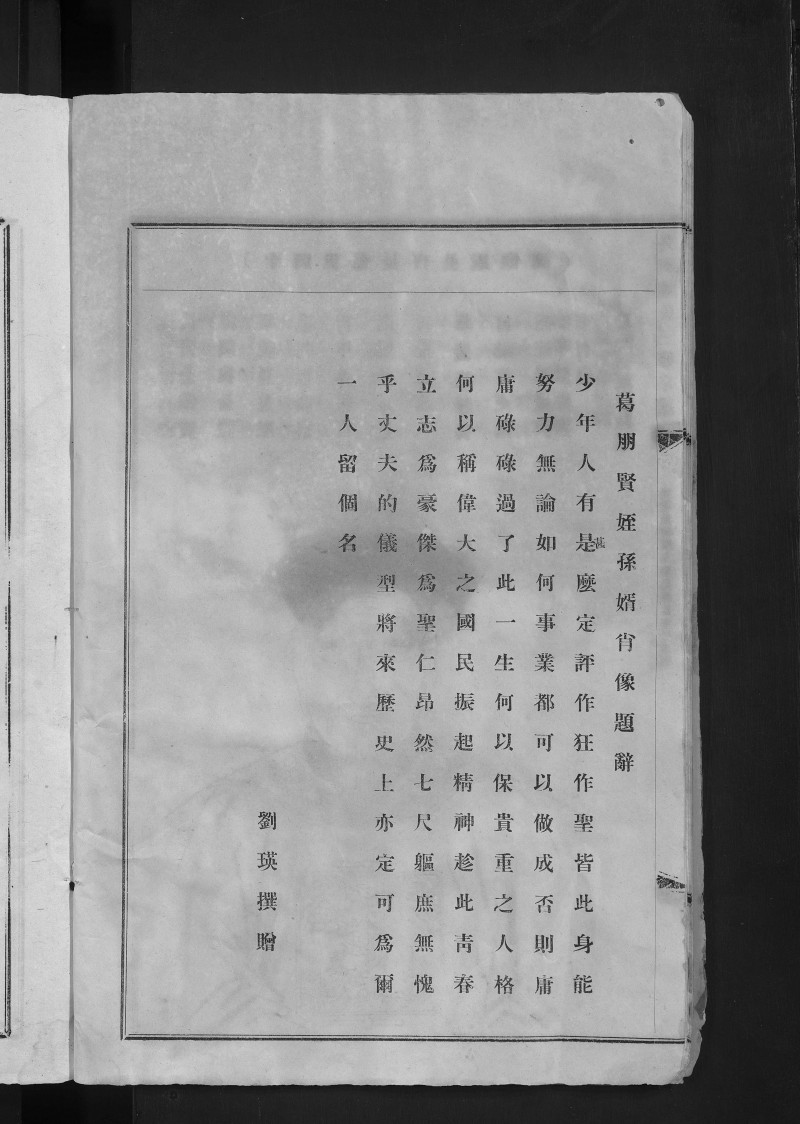 葛朋賢姪孫婿肖像題辭
少年人有是甚麼定評作狂作聖皆此身能
努力無論如何事業都可以做成否則庸
庸碌碌過了此一生何以保貴重之人格
何以稱偉大之國民振起精神趁此青春
立志為豪傑為聖仁昂然七尺軀庶無愧
乎丈夫的儀型將來歷史上亦定可為爾
一人留個名
劉瑛撰贈